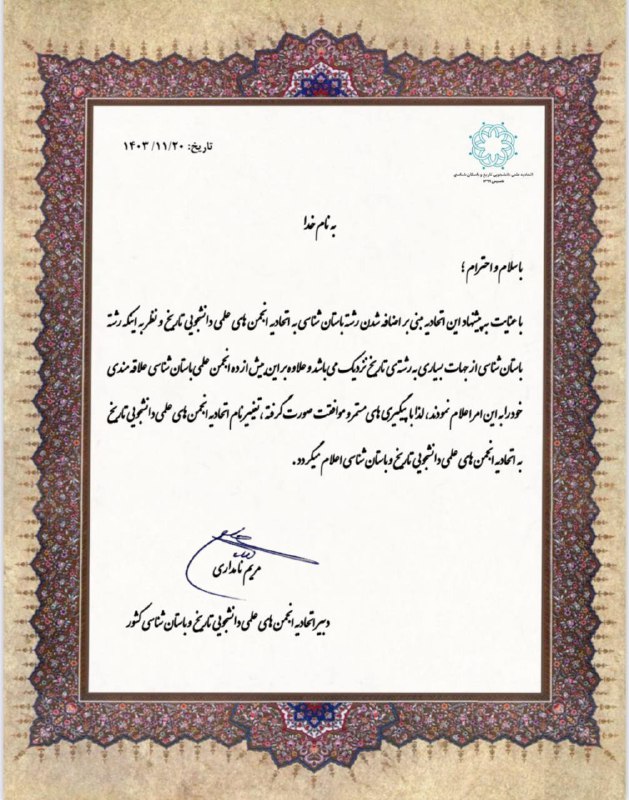 تاریخ: ۱۴۰۳/۱۱/۲۰
اتحادیه علمی دانشجویی تاریخ و باستان شناسی
به نام خدا
با سلام و احترام ؛
با عنایت به پیشنهاد این اتحادیه مبنی بر اضافه شدن رشته باستان شناسی به اتحادیه انجمن های علمی دانشجویی تاریخ و نظر به اینکه رشته
باستان شناسی از جهات بسیاری به رشته ی تاریخ نزدیک می باشد و علاوه بر این بیش از ده انجمن علمی باستان شناسی علاقه مندی
خود را به این امر اعلام نمودند، لذا با پیگیری های مستمر و موافقت صورت گرفته ، تغییر نام اتحادیه انجمن های علمی دانشجویی تاریخ
به اتحادیه انجمن های علمی دانشجویی تاریخ و باستان شناسی اعلام میگردد .
مریم نامداری
دبیر اتحادیه انجمن های علمی دانشجویی تاریخ و باستان شناسی کشور